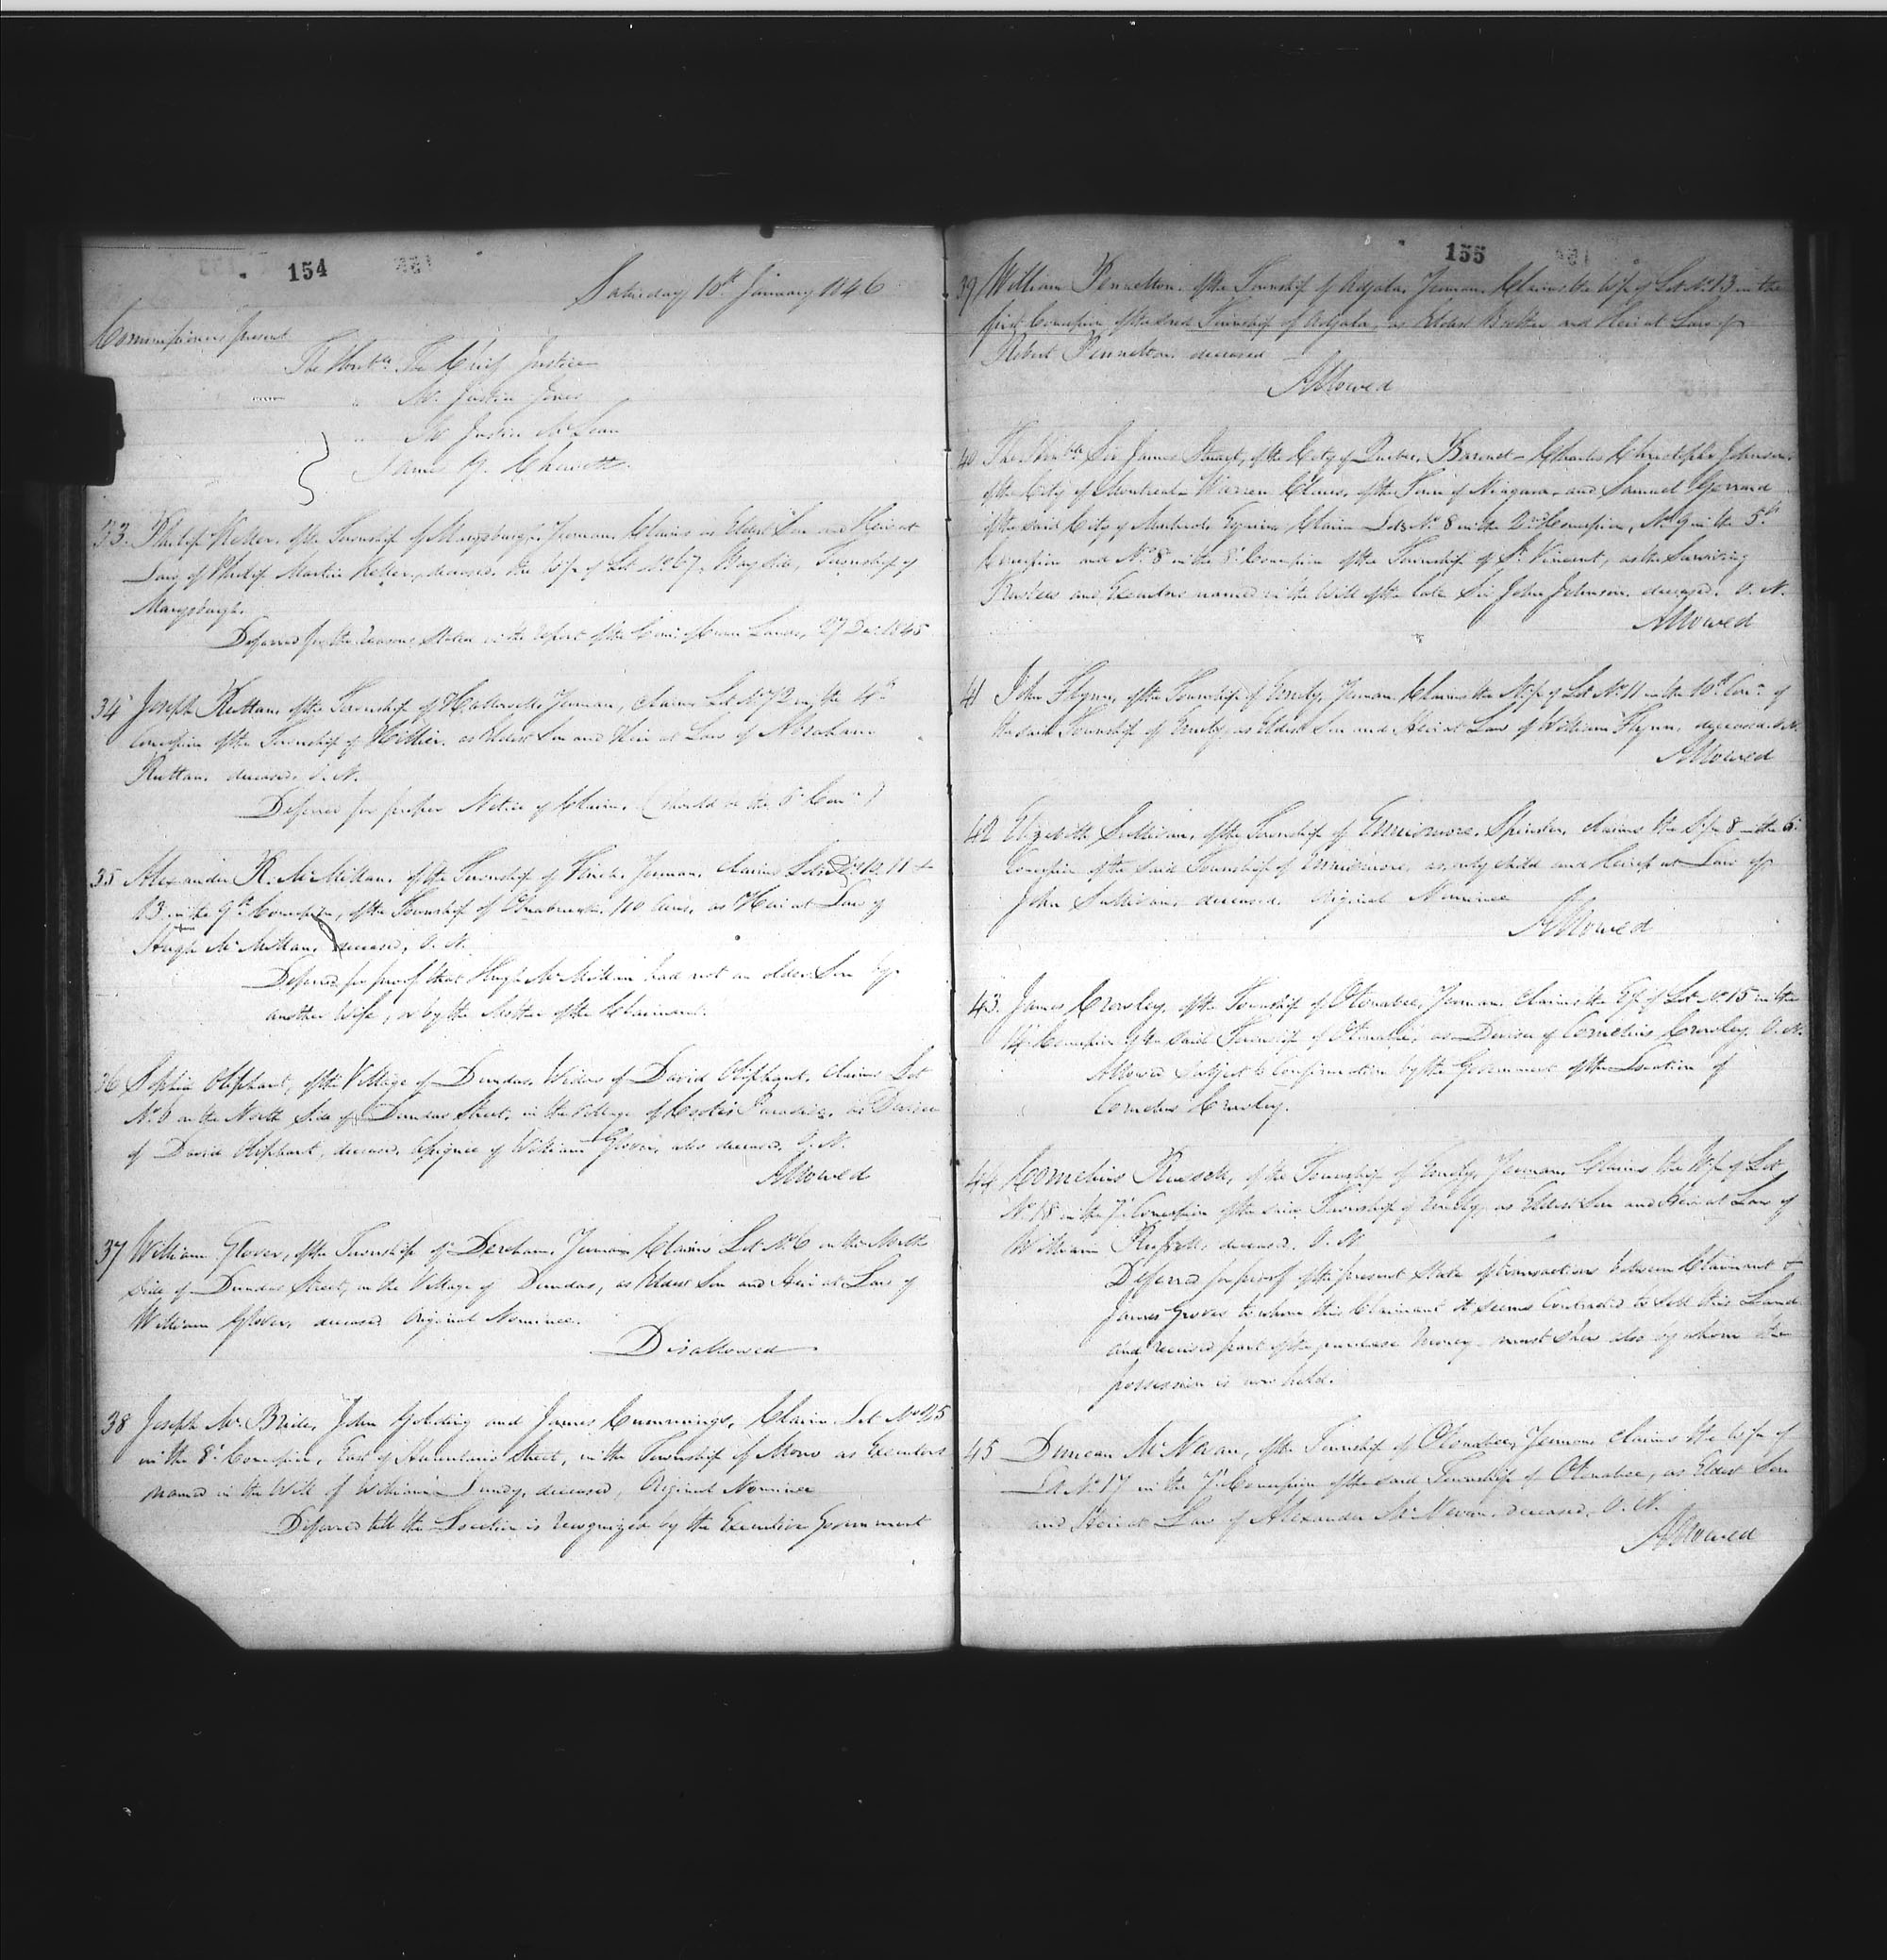 154
Saturday 10th January 1846
Commissioners present
The Honble The Chief Justice
" Mr Justice Jones
" Mr Justice McLean
James G. Chewett
33. Philip Keller, of the Township of Marysburgh, Yeoman, Claims as Eldest Son and Heir at
Law of Philip Martin Keller, deceased, the W½ of Lot No 67, Bay Side, Township of
Marysburgh.
Deferred for the reasons stated in the report of the Comr of Crown Lands, 27 Dec 1845
34 Joseph Ruttan, of the Township of Hallowell, Yeoman, Claims Lot No 72 in the 4th
Concession of the Township of Hillier, as Eldest Son and Heir at Law of Abraham
Ruttan, deceased, O. N.
Deferred for proper Notice of Claim. (should be the 5 Con)
35 Alexander R. McMillan, of the Township of Finch, Yeoman, claims Lots No 10. 11 &
13 in the 9th Concession, of the Township of Osnabruck, 100 Acres, as Heir at Law of
Hugh McMillan, deceased, O. N.
Deferred for proof that Hugh McMillan had not an older Son by
another Wife, or by the Mother of the Claimant.
36 Sophia Oliphant, of the Village of Dundas, Widow of David Oliphant, claims Lot
No 6 on the North Side of Dundas Street, in the Village of Cootes Paradise, as Devisee
of David Oliphant, deceased, Assignee of William Glover, also deceased, O. N.
Allowed
37 William Glover, of the Township of Dereham, Yeoman, Claims Lot No 6 on the North
Side of Dundas Street, in the Village of Dundas, as Eldest Son and Heir at Law of
William Glover, deceased Original Nominee.
Disallowed
38 Joseph McBride, John Golding and James Cummings, Claim Lot No 25
in the 8th Concession, East of Hurontario Street, in the Township of Mono as Executors
named in the Will of William Lundy, deceased, Original Nominee
Deferred till the Location is recognized by the Executive Government
155
39 William Pennelton of the Township of Adjala, Yeoman, Claims the W½ of Lot No 13 in the
first Concession of the said Township of Adjala, as Eldest Brother and Heir at Law of
Robert Pennelton, deceased
Allowed
40 The Honble Sir James Stuart, of the City of Quebec, Baronet - Charles Christopher Johnson,
of the City of Montreal - Warren Claus, of the Town of Niagara, and Samuel Gerrard
of the said City of Montreal, Esquires, Claim Lots No 8 in the 2nd Concession, No 9 in the 5th
Concession and No 8 in the 8th Concession of the Township of St Vincent, as the Surviving
Trustees and Executors named in the Will of the late Sir John Johnson, deceased, O. N.
Allowed
41 John Flynn, of the Township of Emily, Yeoman, Claims the N½ of Lot No 11 in the 10th Con of
the said Township of Emily, as Eldest Son and Heir at Law of William Flynn, deceased O. N.
Allowed
42 Elizabeth Sullivan, of the Township of Ennismore, Spinster, claims the S½ 8 in the 6
Concession of the said Township of Ennismore, as only child and Heir at Law of
John Sullivan, deceased. Original Nominee
Allowed
43. James Crowley, of the Township of Otonabee, Yeoman, Claims the E½ of Lot No 15 in the
14 Concession of the said Township of Otonabee, as Devisee of Cornelius Crowley. O. N.
Allowed subject to Confirmation by the Government of the Location of
Cornelius Crowley.
44 Cornelius Russell, of the Township of Emily, Yeoman, Claims the W½ of Lot
No 18 in the 7 Concession of the said Township of Emily, as Eldest Son and Heir at Law of
William Russell, deceased. O. N.
Deferred for proof of the present State of transactions between Claimant &
James Groves to whom this Claimant it seems Contracted to sell this Land
and received part of the purchase Money - must shew also by whom the
possession is now held.
45 Duncan McNevan, of the Township of Otonabee, Yeoman, Claims the W½ of
Lot No 17 in the 7th Concession of the said Township of Otonabee, as Eldest Son
and Heir at Law of Alexander McNevan, deceased, O. N.
Allowed